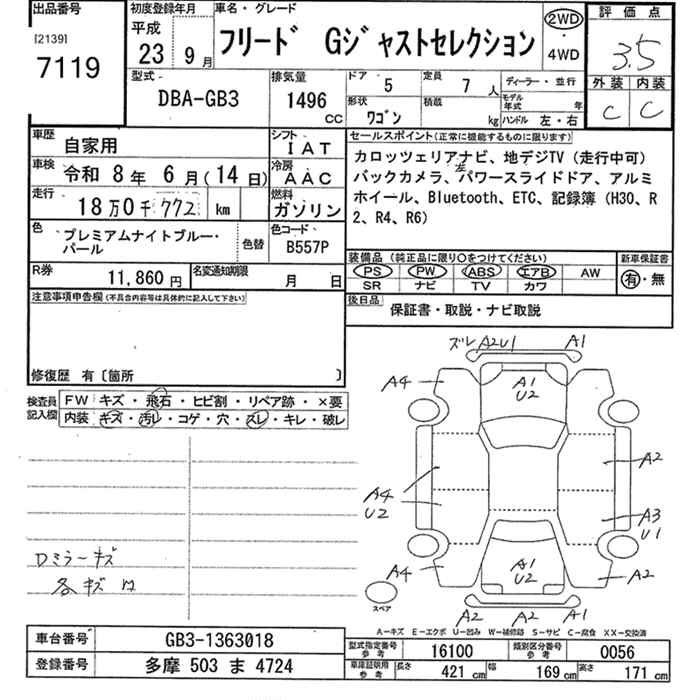 出品番号
[2139]
7119
初度登録年月
平成
23 9月
車名・グレード
フリード Gジャストセレクション
2WD
・
4WD
評価点
3.5
外装 内装
C C
型式
DBA-GB3
排気量
1496
CC
ドア
5
定員
7人
形状
ワゴン
積載
kg
ディーラー・並行
モデル年式 年
ハンドル 左・右
車歴
自家用
シフト
IAT
車検
令和 8年 6月(14日)
冷房
AAC
走行
18万0千772 km
燃料
ガソリン
色
プレミアムナイトブルー・
パール
色替
色コード
B557P
R券
11,860円
名変通知期限
月 日
セールスポイント(正常に機能するものに限ります)
カロッツェリアナビ、地デジTV(走行中可)
バックカメラ、左パワースライドドア、アルミ
ホイール、Bluetooth、ETC、記録簿(H30、R
2、R4、R6)
装備品(純正品に限り○をつけてください)
PS PW ABS エアB AW
SR ナビ TV カワ
新車保証書
有・無
後日品
保証書・取説・ナビ取説
注意事項申告欄(不具合内容等は具体的に記入して下さい)
修復歴 有〔箇所 〕
検査員
記入欄
FW キズ・飛石・ヒビ割・リペア跡・×要
内装 キズ・汚レ・コゲ・穴・スレ・キレ・破レ
Dミラーキズ
各キズ
ズレ A2U1 A1
A4
A1
U2
A2
A4
U2
A3
U1
A4
A1
U2
A2
A2 A2 A1
スペア
A-キズ E-エクボ U-凹み W-補修跡 S-サビ C-腐食 XX-交換済
車台番号
GB3-1363018
登録番号
多摩 503 ま 4724
型式指定番号
参考
16100
類別区分番号
参考
0056
車庫証明用
参考
長さ 421cm
幅 169cm
高さ 171cm